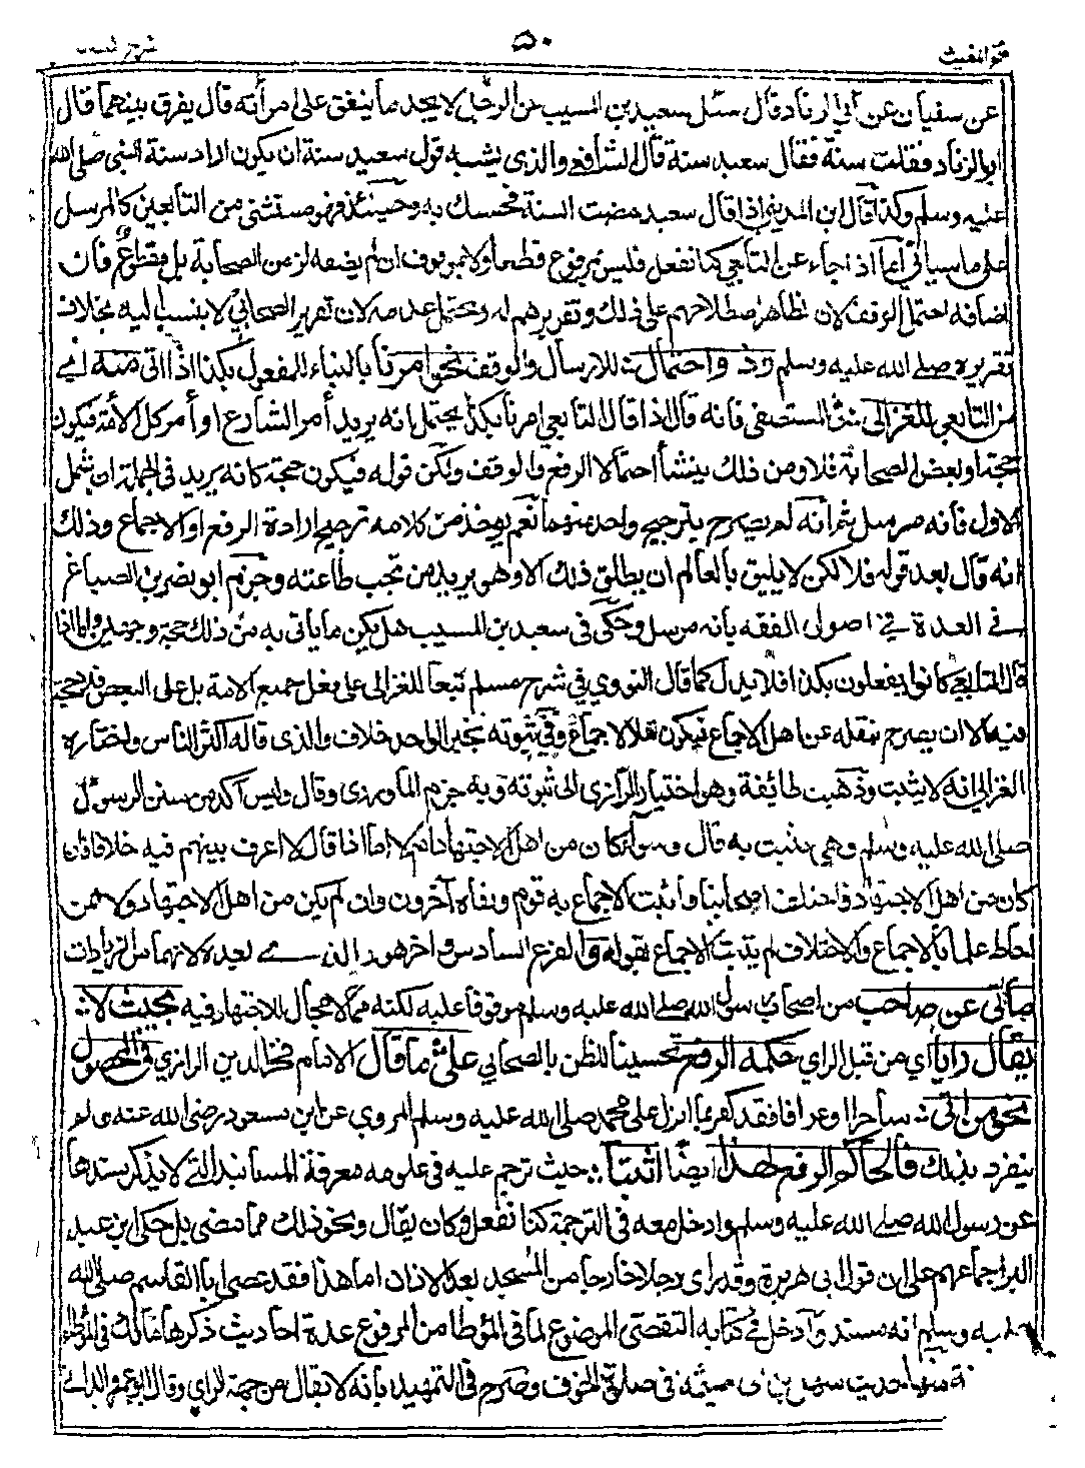 ٥٠
عن سفيان عن أبي الزناد قال سئل سعيد بن المسيب عن الرجل لا يجد ما ينفق على امرأته قال يفرق بينهما قال
ابو الزناد فقلت سنة فقال سعيد سنة قال الشافعي والذي يشبه قول سعيد سنة ان يكون اراد سنة النبي صلى الله
عليه وسلم وكذا قال ابن المديني اذا قال سعيد مضت السنة فحسبك به وحينئذ فهو مستثنى من التابعين كالمرسل
على ما سيأتي أما اذا جاء عن التابعي كنا نفعل فليس بمرفوع قطعا ولا بموقوف ان لم يضفه لزمن الصحابة بل مقطوع فان
اضافه احتمل الوقف لان الظاهر اطلاعهم على ذلك وتقريرهم له ويحتمل عدمه لان تقرير الصحابي لا ينسب اليه بخلاف
تقريره صلى الله عليه وسلم وذو احتمال للارسال والوقف نحو امرنا بالبناء للمفعول بكذا اذا اتى منه اي
من التابعي للغزالي في المستصفى فانه قال اذا قال التابعي امرنا بكذا يحتمل انه يريد أمر الشارع او أمر كل الأمة فيكون
حجة او بعض الصحابة فلا ومن ذلك ينشأ احتمالا الرفع والوقف ولكن قوله فيكون حجة كانه يريد في الجملة ان شمل
الاول فانه مرسل ثم انه لم يصرح بترجيح واحد منهما نعم يوخذ من كلامه ترجيح ارادة الرفع او الاجماع وذلك
انه قال بعد قوله فلا لكن لا يليق بالعالم ان يطلق ذلك الا وهو يريد من تجب طاعته وجزم ابو نصر بن الصباغ
في العدة في اصول الفقه بأنه مرسل وحكى في سعيد بن المسيب هل يكن ما يأتي به من ذلك حجة وجهين واما اذا
قال التابعي كانوا يفعلون بكذا فلا يدل كما قال النووي في شرح مسلم تبعا للغزالي على فعل جميع الامة بل على البعض فلا حجة
فيه الا ان يصرح بنقله عن اهل الاجماع فيكون نقلا للاجماع وفي ثبوته بخبر الواحد خلاف والذي قاله اكثر الناس واختاره
الغزالي انه لا يثبت وذهبت طائفة وهو اختيار الرازي الى ثبوته وبه جزم الماوردي وقال وليس آكد من سنن الرسول
صلى الله عليه وسلم وهي تثبت به قال وسواء كان من اهل الاجتهاد ام لا اما اذا قال لا اعرف بينهم فيه خلافا فان
كان من اهل الاجتهاد فاختلف اصحابنا وأثبت الاجماع به قوم ونفاه آخرون وان لم يكن من اهل الاجتهاد ولا ممن
احاط علما بالاجماع والاختلاف لم يثبت الاجماع بقوله والفرع السادس واخر هو والذي بعده لانهما من الزيادات
ما اتى عن صاحب من اصحاب رسول الله صلى الله عليه وسلم موقوفا عليه لكنه مما لا مجال للاجتهاد فيه بحيث لا
يقال رايا أي من قبل الراي حكمه الرفع تحسينا للظن بالصحابي على ما قال الامام فخر الدين الرازي في المحصول
نحو من اتى ساحرا او عرافا فقد كفر بما انزل على محمد صلى الله عليه وسلم المروي عن ابن مسعود رضي الله عنه ولم
ينفرد بذلك فالحاكم الرفع لهذا ايضا اثبتا حيث ترجم عليه في علومه معرفة المسانيد التي لا يذكر سندها
عن رسول الله صلى الله عليه وسلم وادخل معه في الترجمة كنا نفعل وكان يقال ونحو ذلك مما مضى بل حكى ابن عبد
البر اجماعهم على ان قول ابي هريرة وقد راى رجلا خارجا من المسجد بعد الاذان اما هذا فقد عصى ابا القاسم صلى الله
عليه وسلم انه مسند وأدخل في كتابه التقصي الموضوع لما في الموطا من المرفوع عدة احاديث ذكرها مالك في الموطا
منها حديث سهل بن ابي حثمة في صلوة الخوف وصرح في التمهيد بأنه لا يقال من جهة الراي وقال ابو عمرو الداني